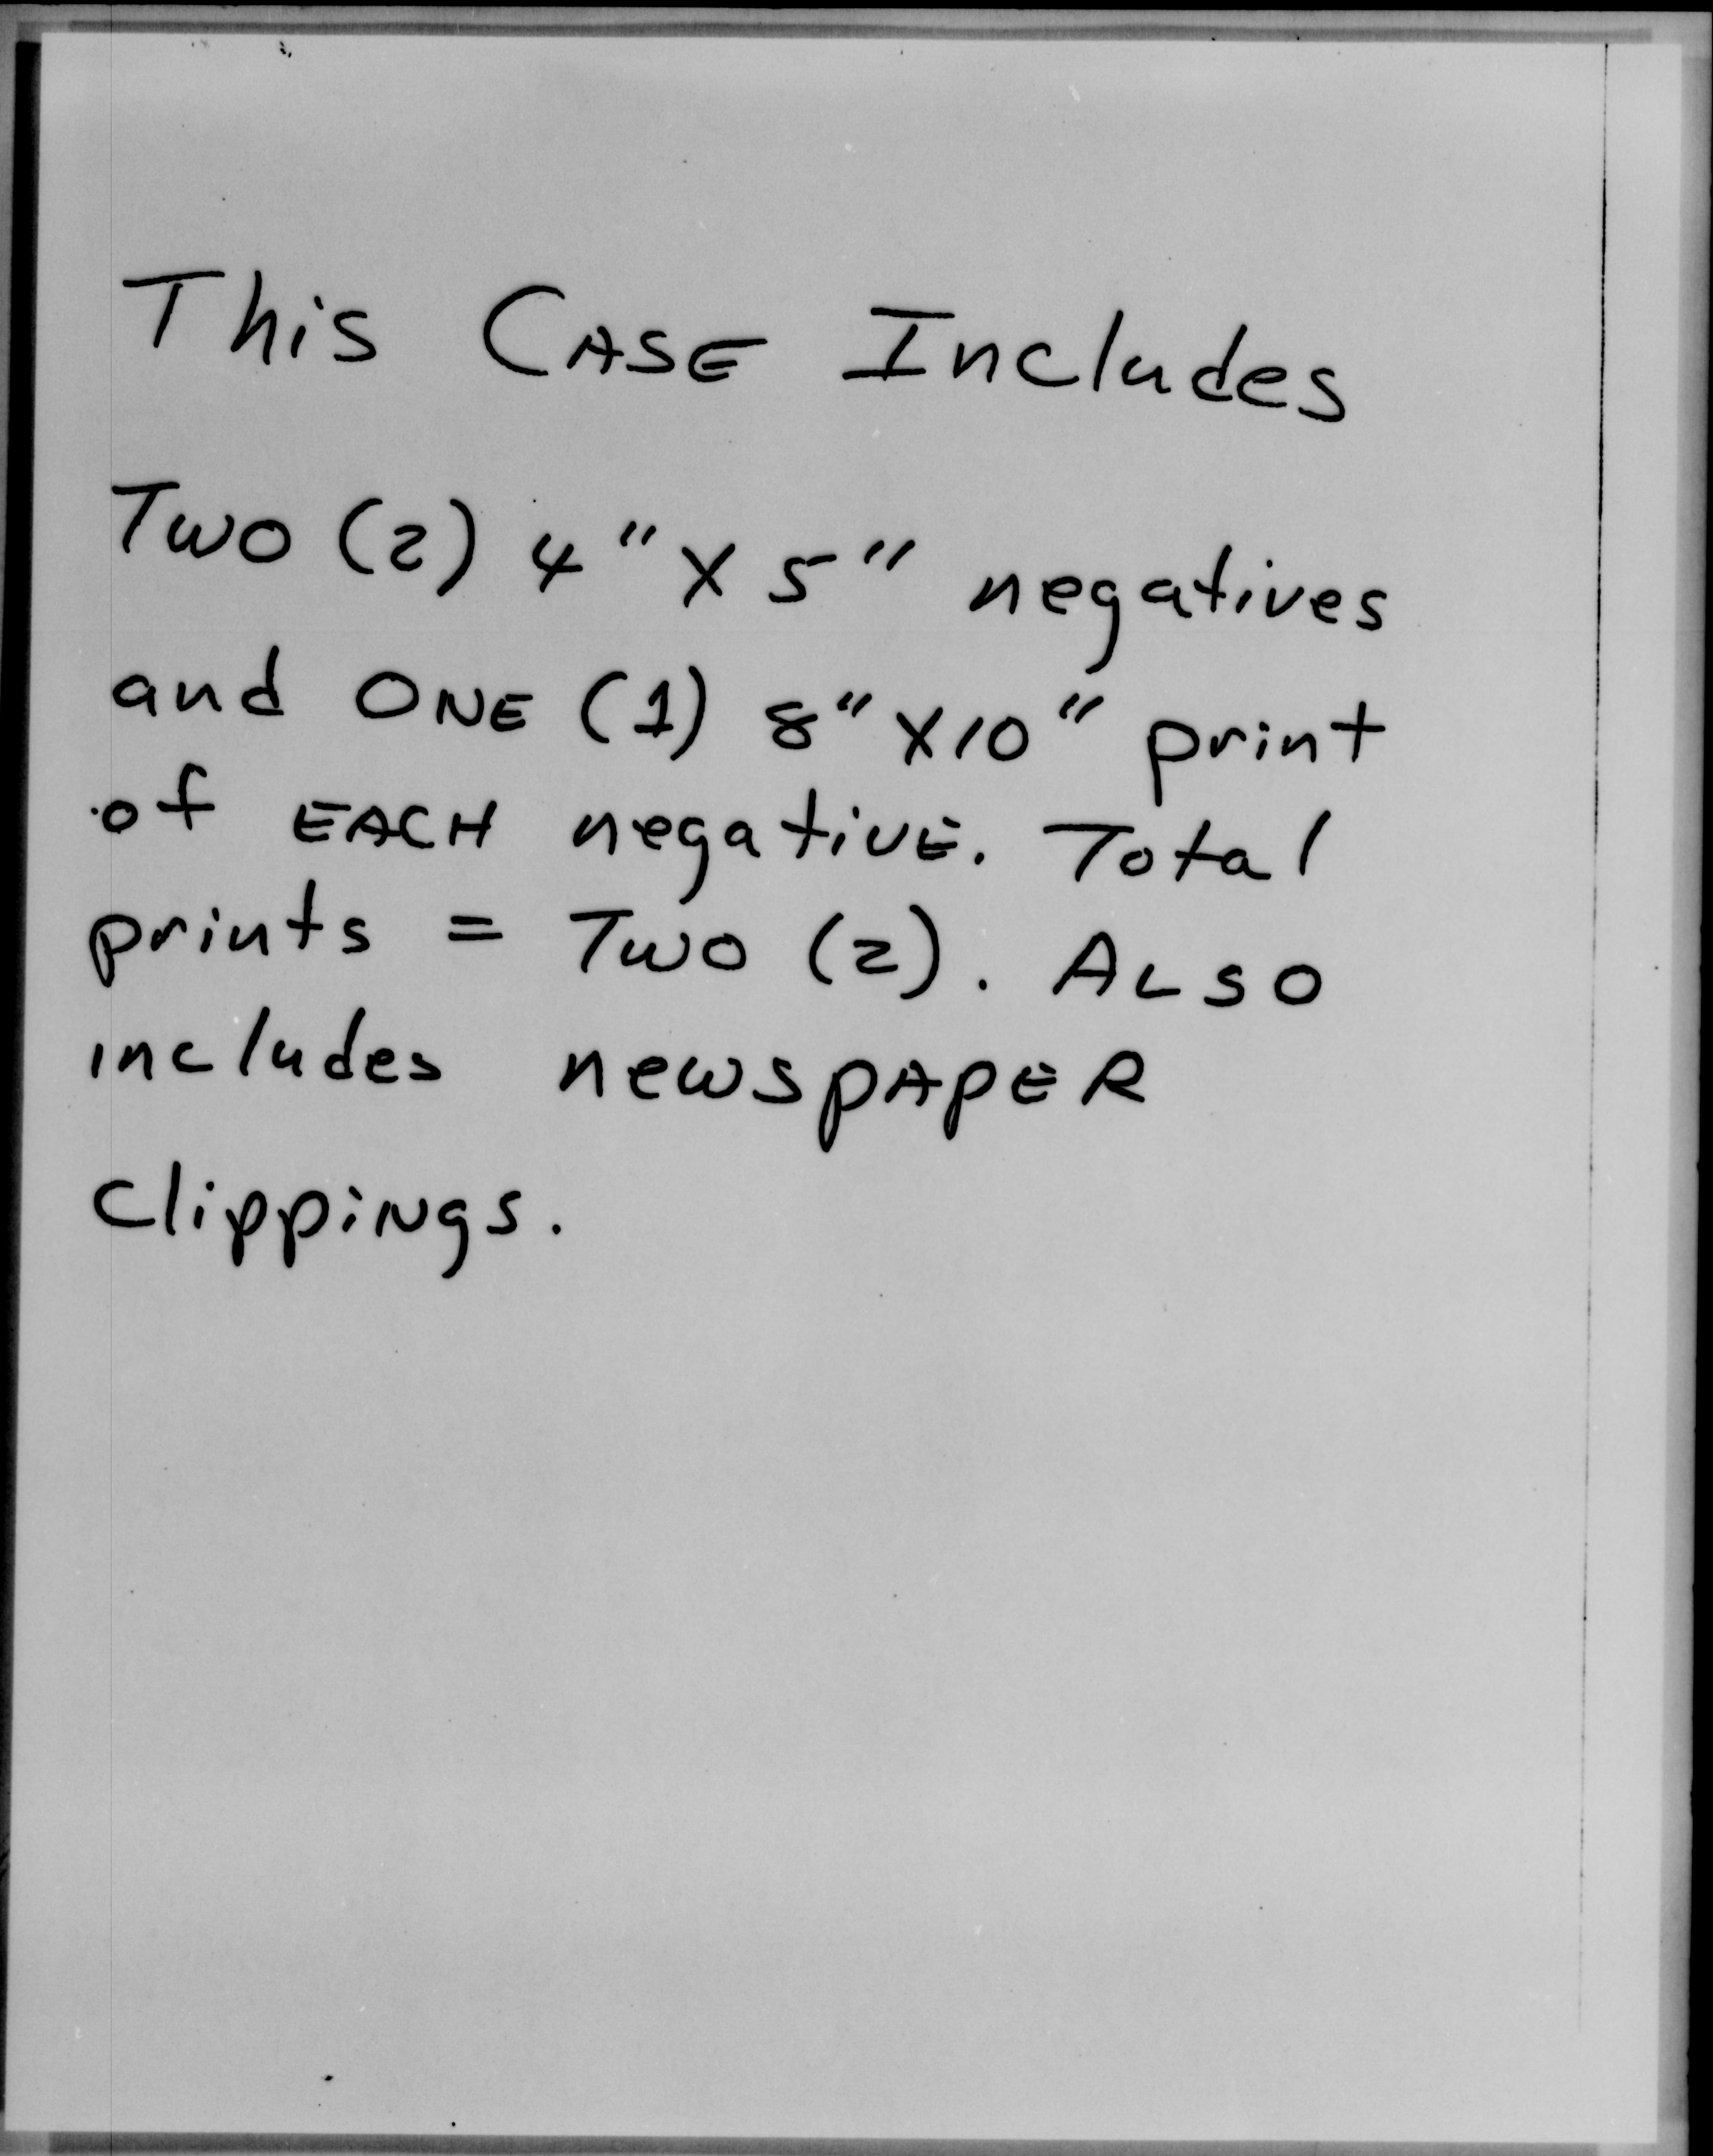 This CASE Includes
Two (2) 4" X 5" negatives
and ONE (1) 8" X10" print
of EACH negativE. Total
prints = Two (2). ALSO
includes newspAPER
clippiNgs.